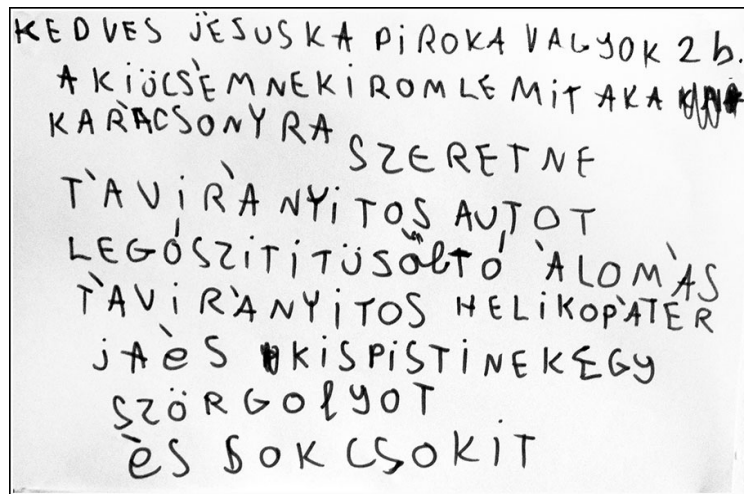 KEDVES JÈSUSKA PIROKA VAGYOK 2b.
A KIÖCSÈMNEKIROMLEMITAKA
KARÀCSONYRA
SZERETNE
TÀVIRÀNYITOS AUTOT
LEGÓSZITITÜSÖLTÓ ÀLOMÀS
TÀVIRÀNYITOS HELIKOPÀTER
JAÈS KISPISTINEKEGY
SZÖRGOLYOT
ÈS SOKCSOKIT